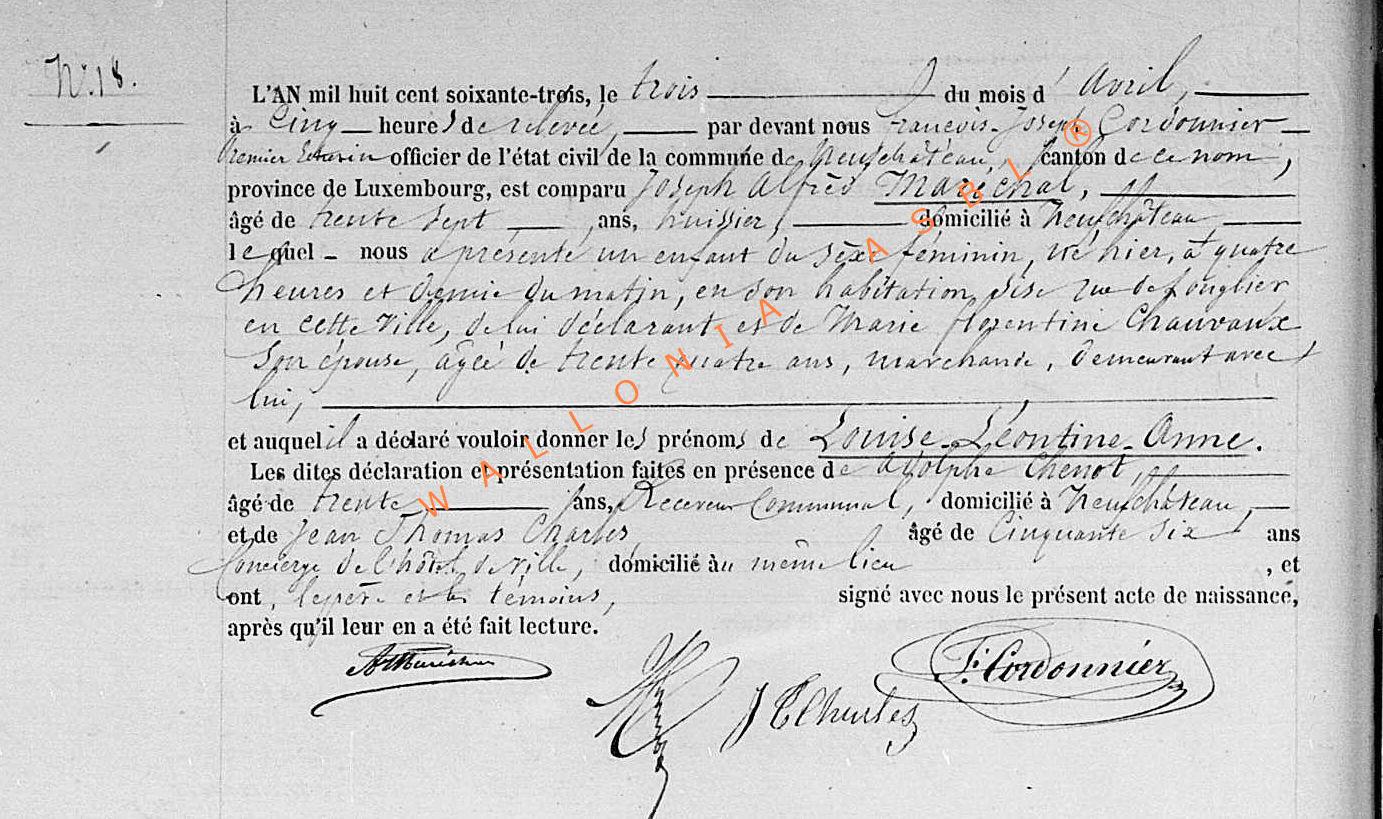 N.° 18.
L'AN mil huit cent soixante-trois, le trois du mois d'Avril,
à Cinq heures de relevée, par devant nous François-Joseph Cordonnier
Premier Echevin officier de l'état civil de la commune de Neufchâteau, canton de ce nom,
province de Luxembourg, est comparu Joseph Alfred Maréchal,
âgé de trente sept ans, huissier, domicilié à Neufchâteau,
lequel nous a présenté un enfant du sèxe féminin, né hier, à quatre
heures et demie du matin, en son habitation sise rue de Longlier
en cette ville, de lui déclarant et de Marie florentine Chauvaux
son épouse, âgée de trente quatre ans, marchande, demeurant avec
lui,
et auquel il a déclaré vouloir donner les prénoms de Louise-Léontine-Anne.
Les dites déclaration et présentation faites en présence de Adolphe Chenot,
âgé de trente ans, Receveur Communal, domicilié à Neufchâteau,
et de Jean Thomas Charles, âgé de Cinquante six ans
Concierge de l'hôtel de ville, domicilié au même lieu, et
ont, le père et les témoins, signé avec nous le présent acte de naissance,
après qu'il leur en a été fait lecture.
AMaréchal
J T Charles
F. Cordonnier
WALLONIA ASBL ®